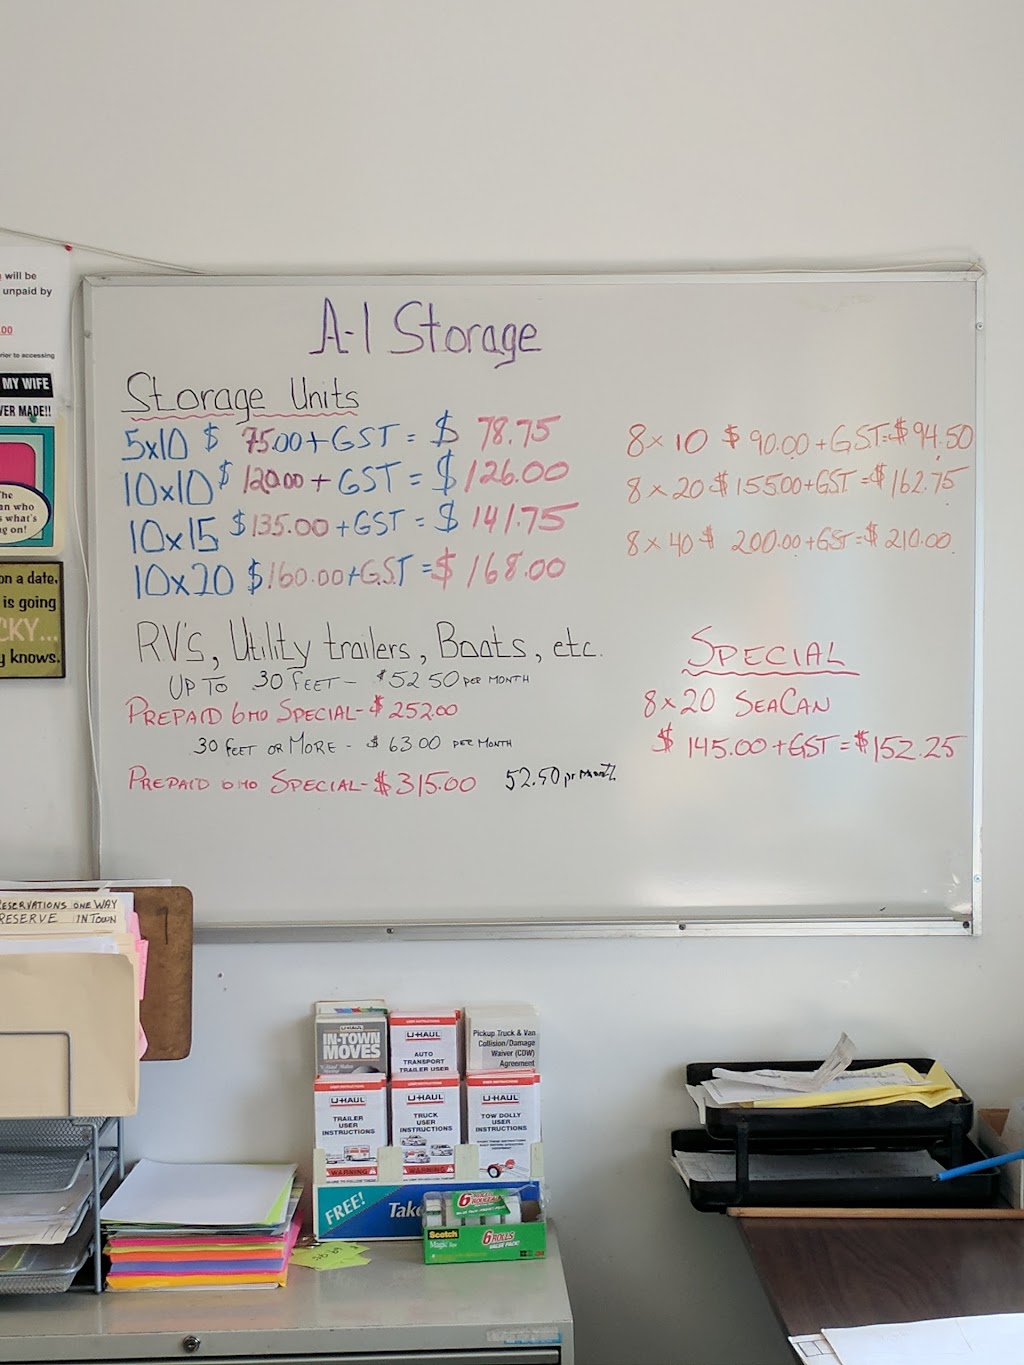 will be
unpaid by
.00
rior to accessing
MY WIFE
VER MADE!!
he
an who
s what's
g on!
on a date,
is going
CKY...
y knows.
A-1 Storage
Storage Units
5x10 $ 75.00 + GST = $ 78.75
10x10 $ 120.00 + GST = $ 126.00
10x15 $ 135.00 + GST = $ 141.75
10x20 $ 160.00 + G.S.T = $ 168.00
8 x 10 $ 90.00 + GST = $ 94.50
8 x 20 $ 155.00 + GST = $ 162.75
8 x 40 $ 200.00 + GST = $ 210.00
RV's, Utility trailers, Boats, etc.
UP TO 30 FEET - $52.50 PER MONTH
PREPAID 6 MO SPECIAL - $ 252.00
30 FEET OR MORE - $ 63.00 PER MONTH
PREPAID 6 MO SPECIAL - $ 315.00 52.50 pr month
SPECIAL
8 x 20 SEACAN
$ 145.00 + GST = $152.25
ESERVATIONS ONE WAY
RESERVE IN TOWN
U-HAUL
IN-TOWN
MOVES
USER INSTRUCTIONS
U-HAUL
AUTO
TRANSPORT
TRAILER USER
Pickup Truck & Van
Collision/Damage
Waiver (CDW)
Agreement
USER INSTRUCTIONS
U-HAUL
TRAILER
USER
INSTRUCTIONS
WARNING
USER INSTRUCTIONS
U-HAUL
TRUCK
USER
INSTRUCTIONS
WARNING
USER INSTRUCTIONS
U-HAUL
TOW DOLLY
USER
INSTRUCTIONS
FREE!
Take
6 ROLLS
Scotch
Magic
6 ROLLS
VALUE PACK!
3M